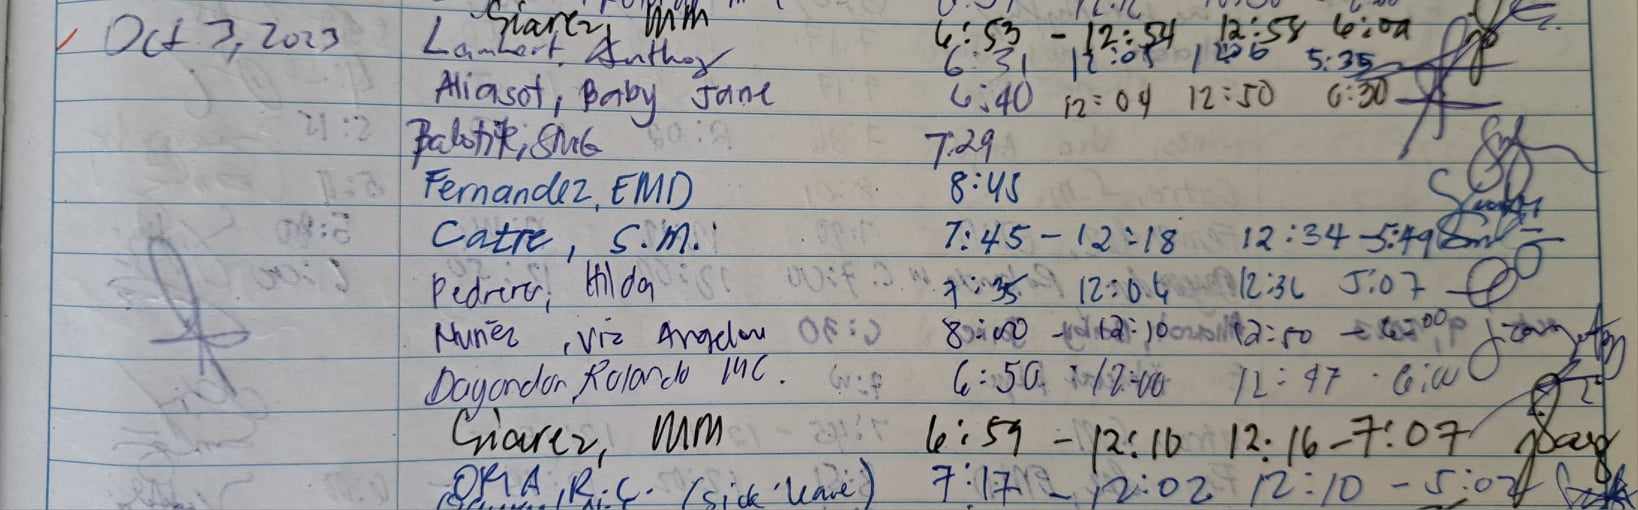 Giarez, MM 6:53 - 12:54 12:58 6:02
Oct 3, 2023 Lambert, Anthony 6:31 12:05 5:35
Aliasot, Baby Jane 6:40 12:04 12:50 6:30
SMG 7:29
Fernandez, EMD 8:45
Catre, S.M. 7:45 - 12:18 12:34 - 5:49
Pedrero, Hilda 7:35 12:04 12:36 5:07
Nuñez, Viz Angelou 8:00 - 12:10 12:50 - 6:00
Dagondon, Rolando MC. 6:50 12:00 12:47 6:00
Giarez, MM 6:59 - 12:10 12:16 - 7:07
R.C. (sick leave) 7:17 - 12:02 12:10 - 5:02